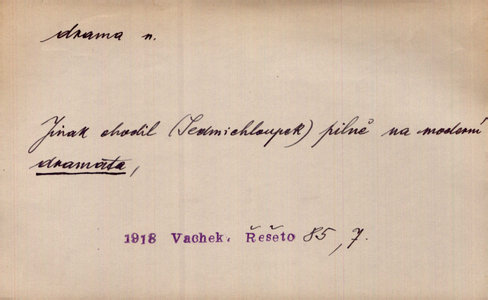 drama n.
Jinak chodil (Sedmichloupek) pilně na moderní
dramata,
1918 Vachek. Řešeto 85, 7.